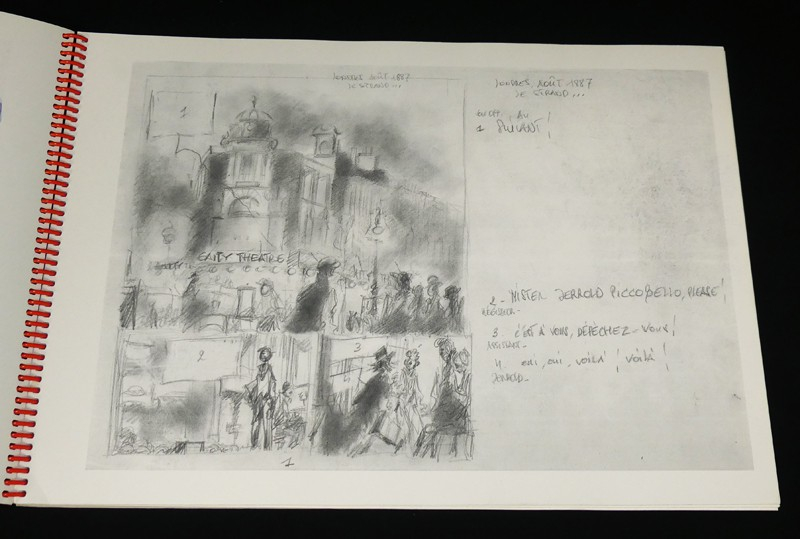 LONDRES, AOÛT 1887
LE STRAND...
1
GAITY THEATRE
2
3
4
1
LONDRES, AOÛT 1887
LE STRAND...
1 AU SUIVANT!
2 - MISTER JERROLD PICCOBELLO, PLEASE!
3 C'EST À VOUS, DÉPÊCHEZ-VOUS!
4 OUI, OUI, VOILÀ! VOILÀ!
JERROLD -